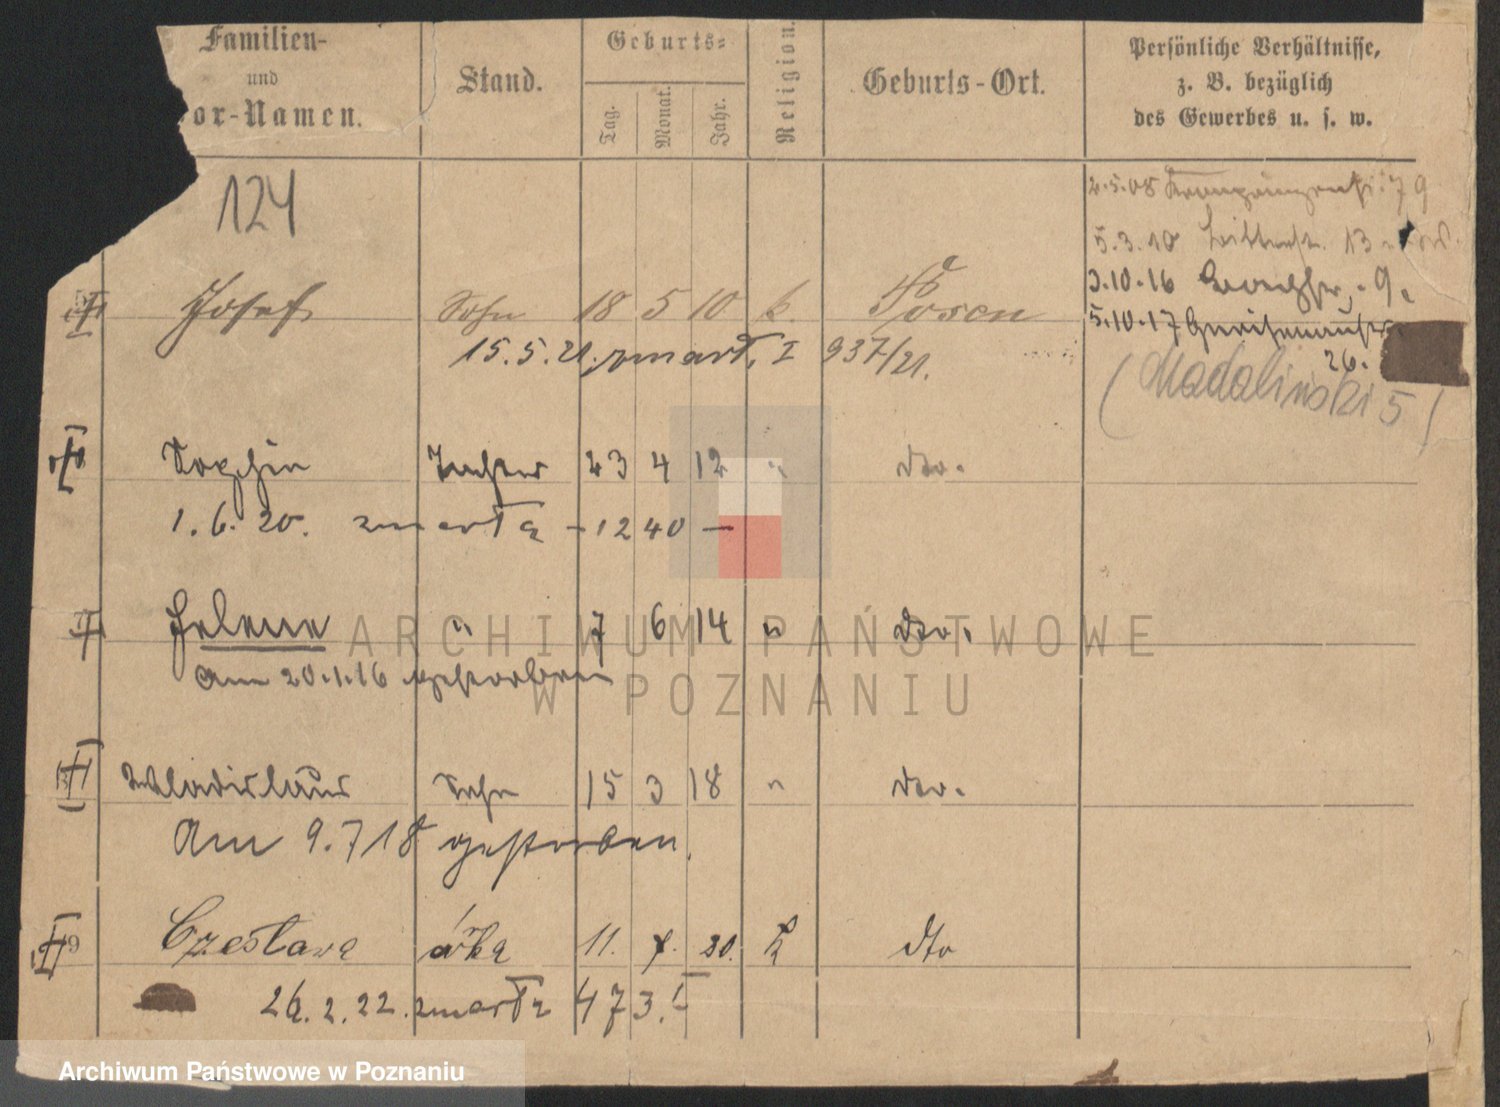 Familien-
und
or-Namen.
Stand.
Geburts-
Tag.
Monat.
Jahr.
Religion.
Geburts-Ort.
Persönliche Verhältnisse,
z. B. bezüglich
des Gewerbes u. s. w.
124
2.5.08 79
5.3.10 13
3.10.16 9.
Josef Sohn 18 5 10 k. Posen
5.10.17
26.
15.5.21. zmarł, I 937/21.
(Madalinski 5)
Sophie Tochter 23 4 12 " dto.
1.6.20. zmarła - 1240 -
Helene " 7 6 14 " dto.
am 20.1.16 gestorben
Wladislaus Sohn 15 3 18 " dto.
Am 9.7 18 gestorben.
Czesława córka 11. 20. k dto
26.2.22. zmarła 473. I
ARCHIWUM PAŃSTWOWE
W POZNANIU
Archiwum Państwowe w Poznaniu